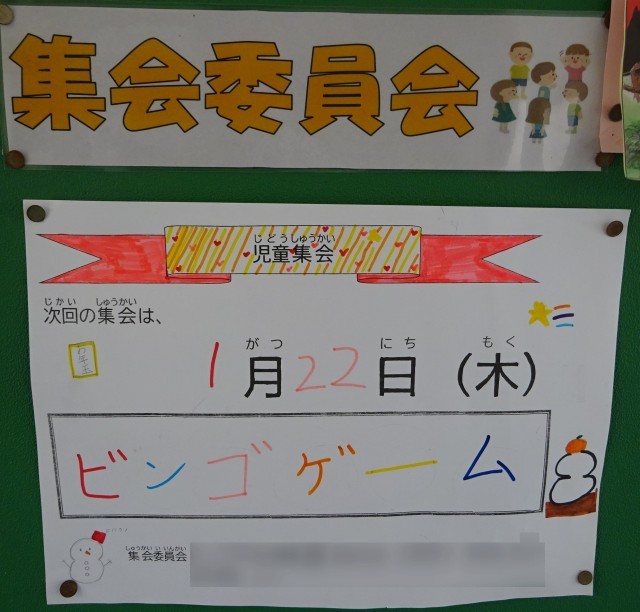 集会委員会
じどうしゅうかい
児童集会
じかい しゅうかい
次回の集会は、
お年玉
がつ にち もく
1月22日(木)
ビンゴゲーム
しゅうかいいいんかい
集会委員会